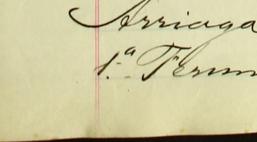 Arriaga
1.ª Ferm